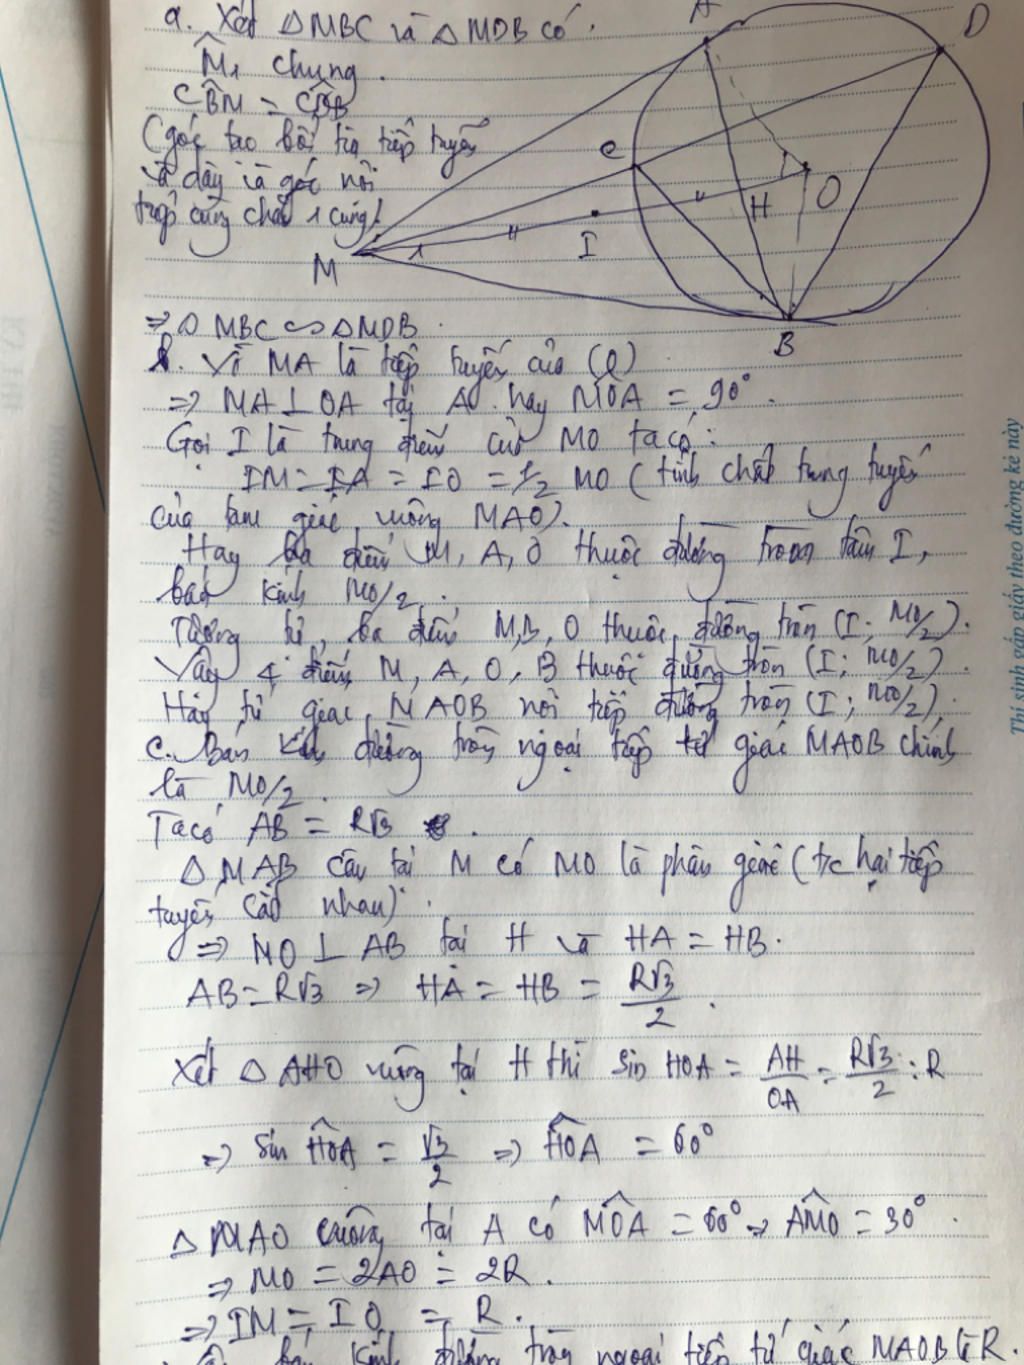 a. Xét △MBC và △MDB có.
M̂₁ chung.
CB̂M = CD̂B
(góc tạo bởi tia tiếp tuyến
và dây và góc nội
tiếp cùng chắn 1 cung)
A
D
C
O
H
I
M
1
B
⇒ △ MBC ∽ △MDB.
b. Vì MA là tiếp tuyến của (O)
⇒ MA ⊥ OA tại A. hay MÔA = 90°.
Gọi I là trung điểm của MO ta có:
IM = IA = IO = 1/2 MO (tính chất trung tuyến
của tam giác vuông MAO).
Hay ba điểm M, A, O thuộc đường tròn tâm I,
bán kính MO/2.
Tương tự, ba điểm M,B, O thuộc đường tròn (I; MO/2).
Vậy 4 điểm M, A, O, B thuộc đường tròn (I; MO/2).
Hay tứ giác MAOB nội tiếp đường tròn (I; MO/2).
c. Bán kính đường tròn ngoại tiếp tứ giác MAOB chính
là MO/2.
Ta có AB = R√3 .
△ MAB cân tại M có MO là phân giác (t/c hai tiếp
tuyến cắt nhau).
⇒ MO ⊥ AB tại H và HA = HB.
AB = R√3 ⇒ HA = HB = R√3/2.
Xét △ AHO vuông tại H thì sin HOA = AH/OA = R√3/2 : R
⇒ Sin HÔA = √3/2 ⇒ HÔA = 60°
△ MAO vuông tại A có MÔA = 60° ⇒ AM̂O = 30°.
⇒ MO = 2AO = 2R.
⇒ IM = IO = R.
bán kính đường tròn ngoại tiếp tứ giác MAOB là R.
Thí sinh gấp giấy theo đường kẻ này